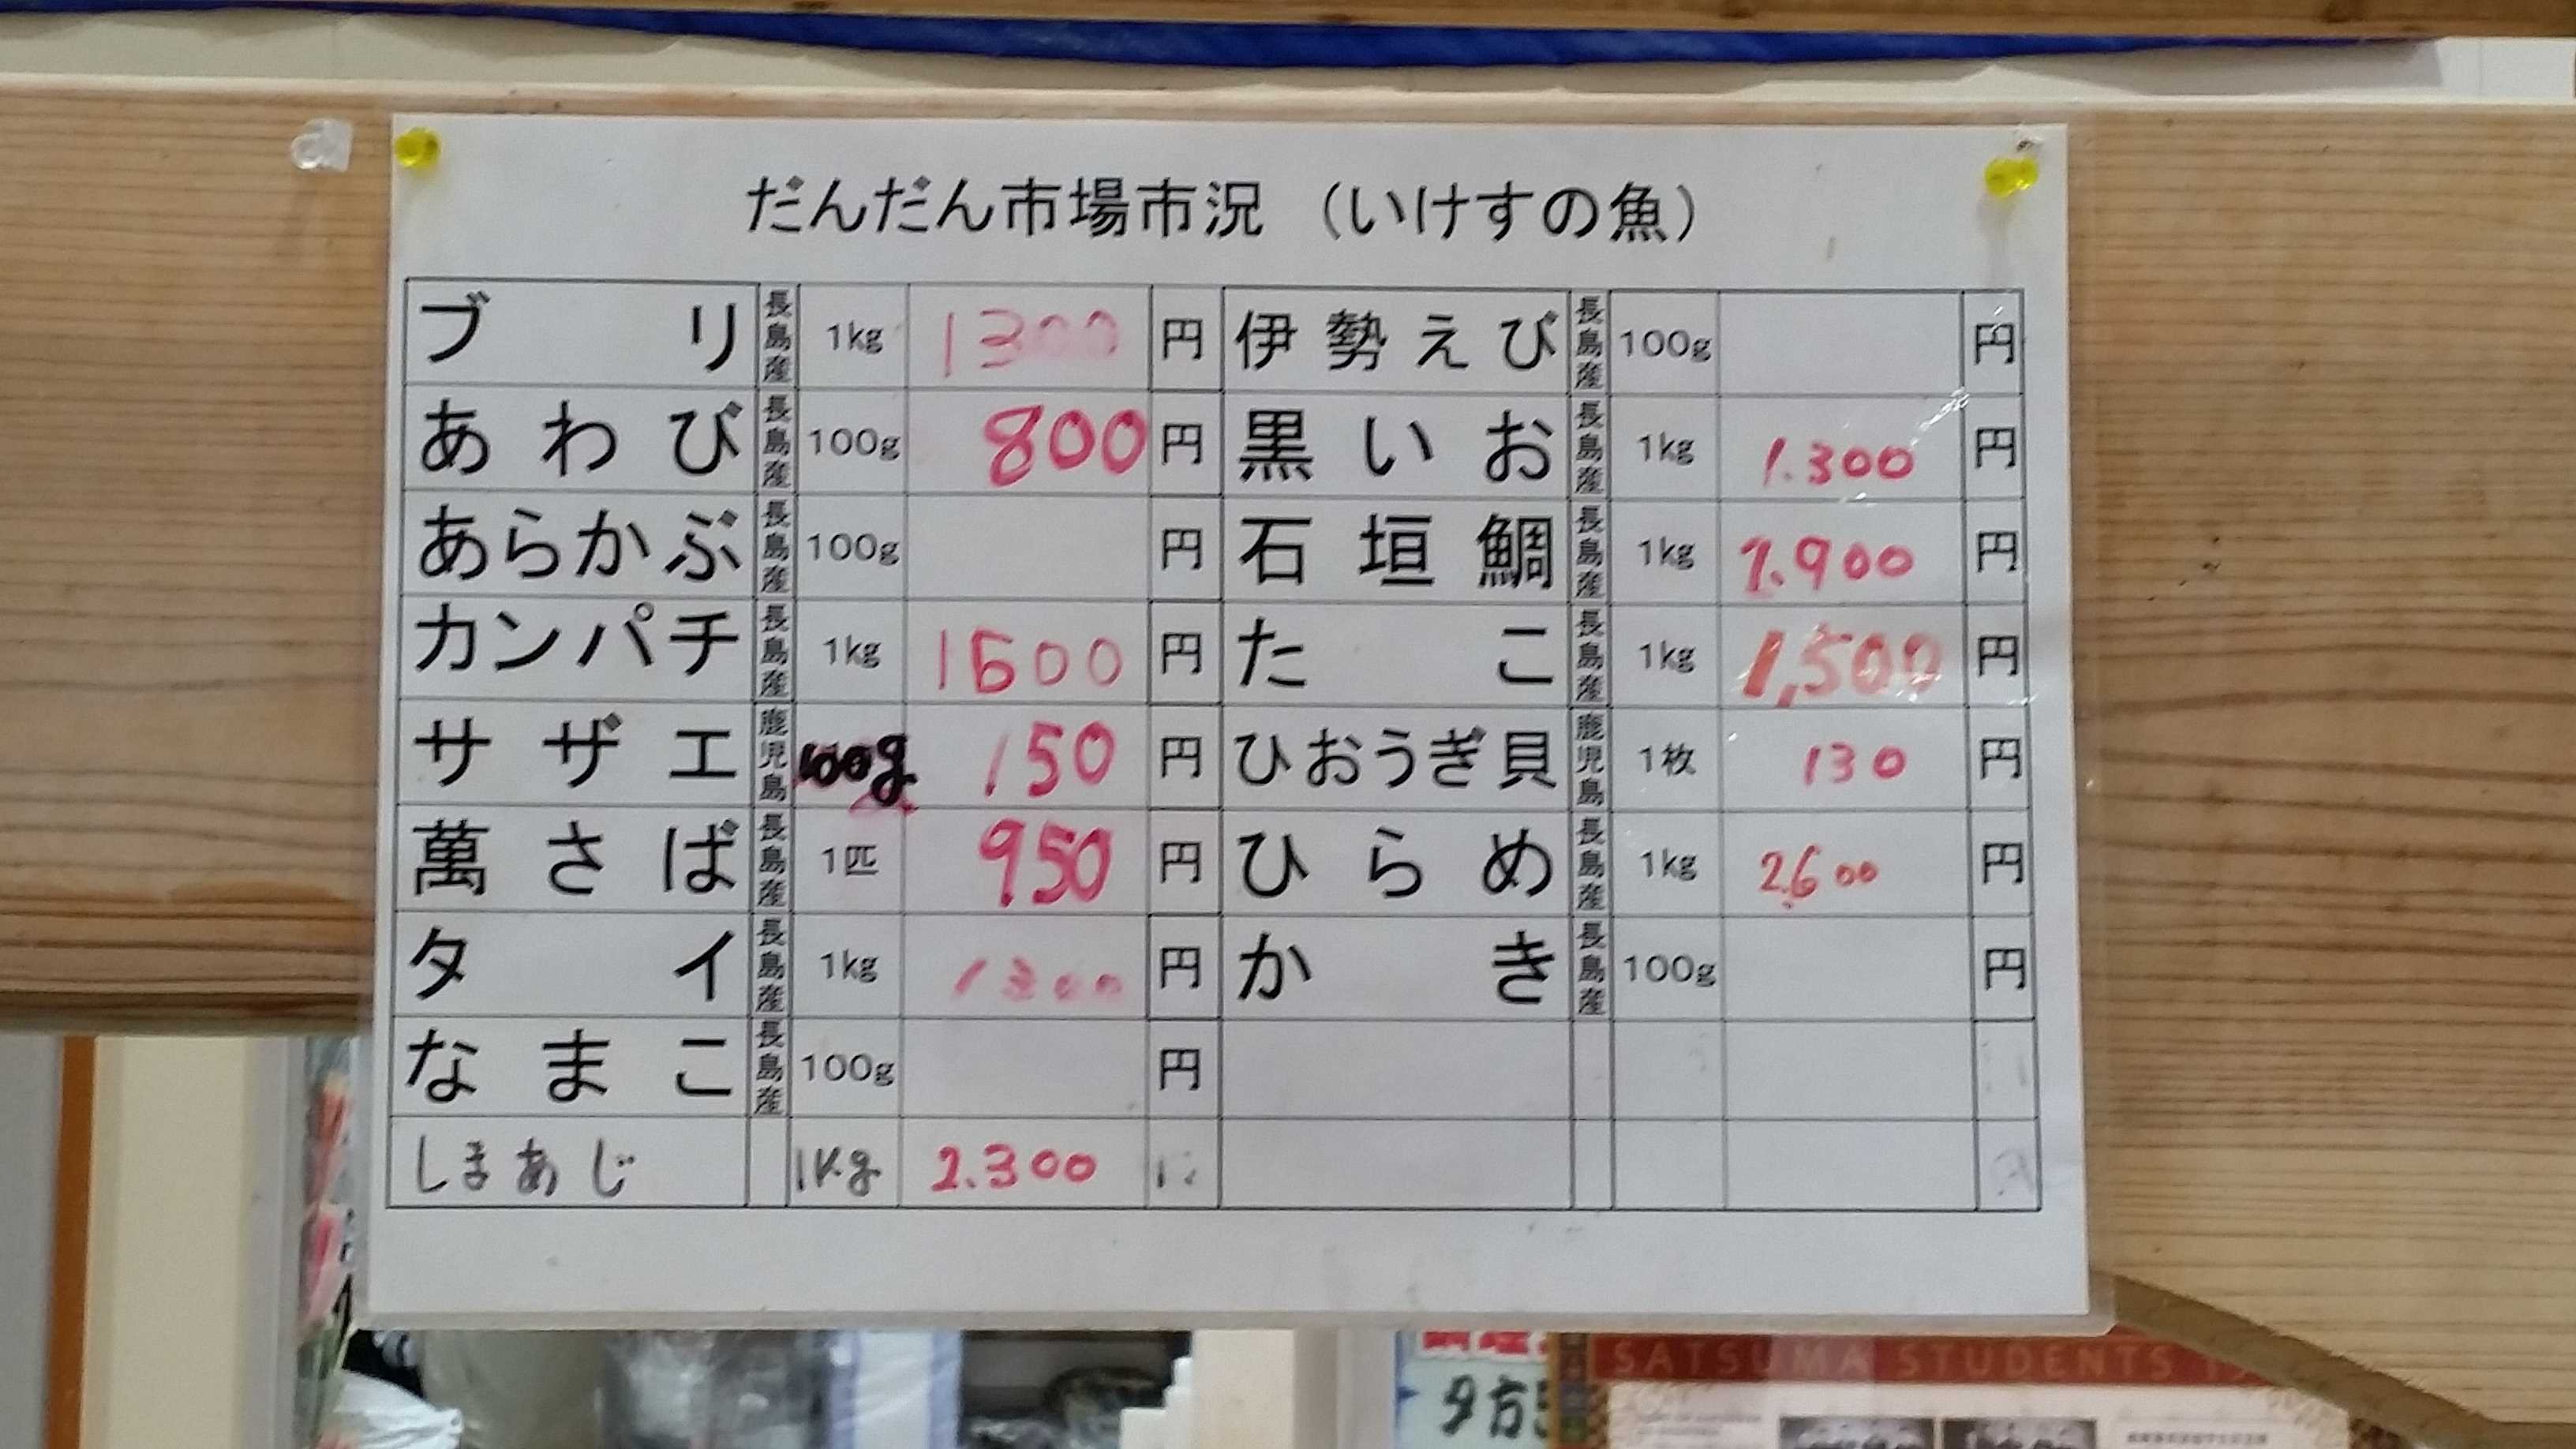 だんだん市場市況 （いけすの魚）
ブリ 長島産 1kg 1300 円 伊勢えび 長島産 100g 円
あわび 長島産 100g 800 円 黒いお 長島産 1kg 1.300 円
あらかぶ 長島産 100g 円 石垣鯛 長島産 1kg 1.900 円
カンパチ 長島産 1kg 1600 円 たこ 長島産 1kg 1,500 円
サザエ 鹿児島 100g 150 円 ひおうぎ貝 鹿児島 1枚 130 円
萬さば 長島産 1匹 950 円 ひらめ 長島産 1kg 2.600 円
タイ 長島産 1kg 1300 円 かき 長島産 100g 円
なまこ 長島産 100g 円
しまあじ 1Kg 2.300
SATSUMA STUDENTS
夕方